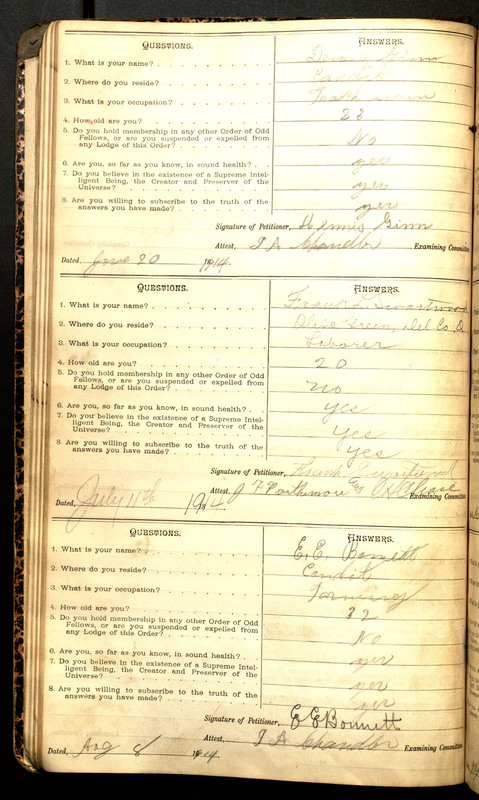 QUESTIONS. ANSWERS.
1. What is your name? Dennis Ginn
2. Where do you reside? Condit
3. What is your occupation?
4. How old are you? 28
5. Do you hold membership in any other Order of Odd
Fellows, or are you suspended or expelled from
any Lodge of this Order? No
6. Are you, so far as you know, in sound health? yes
7. Do you believe in the existence of a Supreme Intel-
ligent Being, the Creator and Preserver of the
Universe? yes
8. Are you willing to subscribe to the truth of the
answers you have made? yes
Signature of Petitioner, Dennis Ginn
Attest, J A Chandler Examining Committee
Dated, June 20 1914
QUESTIONS. ANSWERS.
1. What is your name? Frank L Swartwood
2. Where do you reside? Olive Green, Del Co. O
3. What is your occupation? Laborer
4. How old are you? 20
5. Do you hold membership in any other Order of Odd
Fellows, or are you suspended or expelled from
any Lodge of this Order? No
6. Are you, so far as you know, in sound health? yes
7. Do you believe in the existence of a Supreme Intel-
ligent Being, the Creator and Preserver of the
Universe? yes
8. Are you willing to subscribe to the truth of the
answers you have made? yes
Signature of Petitioner, Frank Swartwood
Attest, J F Examining Committee
Dated, July 11th 1914
QUESTIONS. ANSWERS.
1. What is your name? E. E. Bonnett
2. Where do you reside? Condit
3. What is your occupation? Farming
4. How old are you? 32
5. Do you hold membership in any other Order of Odd
Fellows, or are you suspended or expelled from
any Lodge of this Order? No
6. Are you, so far as you know, in sound health? yes
7. Do you believe in the existence of a Supreme Intel-
ligent Being, the Creator and Preserver of the
Universe? yes
8. Are you willing to subscribe to the truth of the
answers you have made? yes
Signature of Petitioner, E E Bonnett
Attest, J A Chandler Examining Committee
Dated, Aug 8 1914